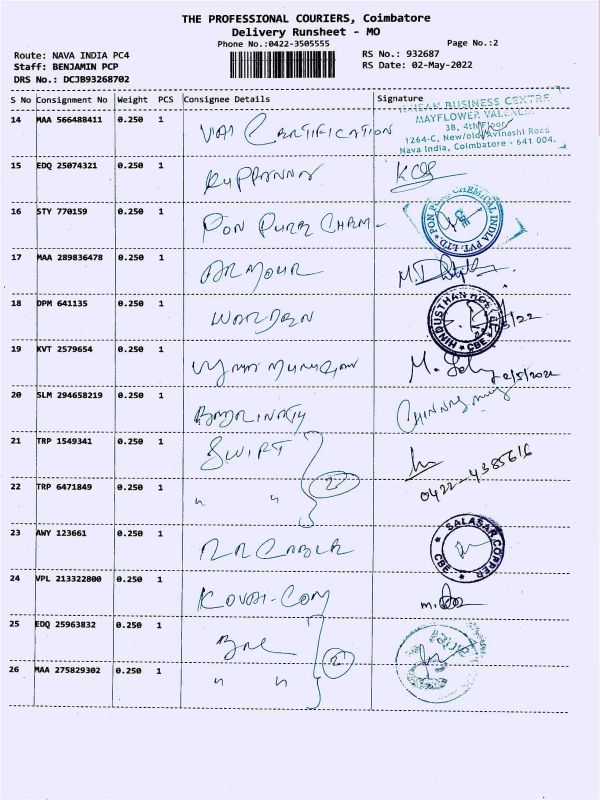 THE PROFESSIONAL COURIERS, Coimbatore
Delivery Runsheet - MO
Phone No.:0422-3505555
Page No.:2
Route: NAVA INDIA PC4
RS No.: 932687
Staff: BENJAMIN PCP
RS Date: 02-May-2022
DRS No.: DCJB93268702
S No Consignment No Weight PCS Consignee Details Signature
BUSINESS CENTRE
MAYFLOWER VALENCIA
3B, 4th Floor
1264-C, New/old Avinashi Road
Nava India, Coimbatore - 641 004.
14 MAA 566488411 0.250 1 CERTIFICATION
15 EDQ 25074321 0.250 1 RUPPANNA
16 STY 770159 0.250 1 PON PURE CHEM-
PON PURE CHEMICAL INDIA PVT. LTD.
CBE
17 MAA 289836478 0.250 1 ARMOUR
18 DPM 641135 0.250 1 WARDEN
HINDUSTHAN
CBE
5/22
19 KVT 2579654 0.250 1
2/5/2022
20 SLM 294658219 0.250 1 BADRINATH
21 TRP 1549341 0.250 1 SWIFT
0422-4385616
22 TRP 6471849 0.250 1 " "
2
23 AWY 123661 0.250 1 RR CABLE
SALASAR COPPER
CBE
24 VPL 213322800 0.250 1 KOVAI-COM
25 EDQ 25963832 0.250 1
26 MAA 275829302 0.250 1 " "
2